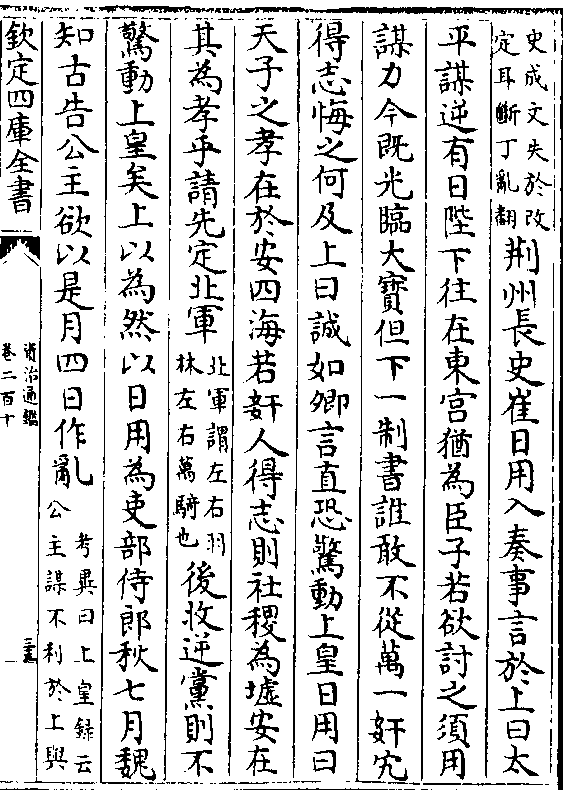 史成文失於改
定耳斷丁亂翻
荆州長史崔日用入奏事言於上曰太
平謀逆有日陛下往在東宫猶為臣子若欲討之須用
謀力今既光臨大寶但下一制書誰敢不從萬一奸宄
得志悔之何及上曰誠如卿言直恐驚動上皇日用曰
天子之孝在於安四海若奸人得志則社稷為墟安在
其為孝乎請先定北軍
北軍謂左右羽
林左右萬騎也
後收逆黨則不
驚動上皇矣上以為然以日用為吏部侍郎秋七月魏
知古告公主欲以是月四日作亂
考異曰上皇録云
公主謀不利於上與
欽定四庫全書
資治通鑑
卷二百十